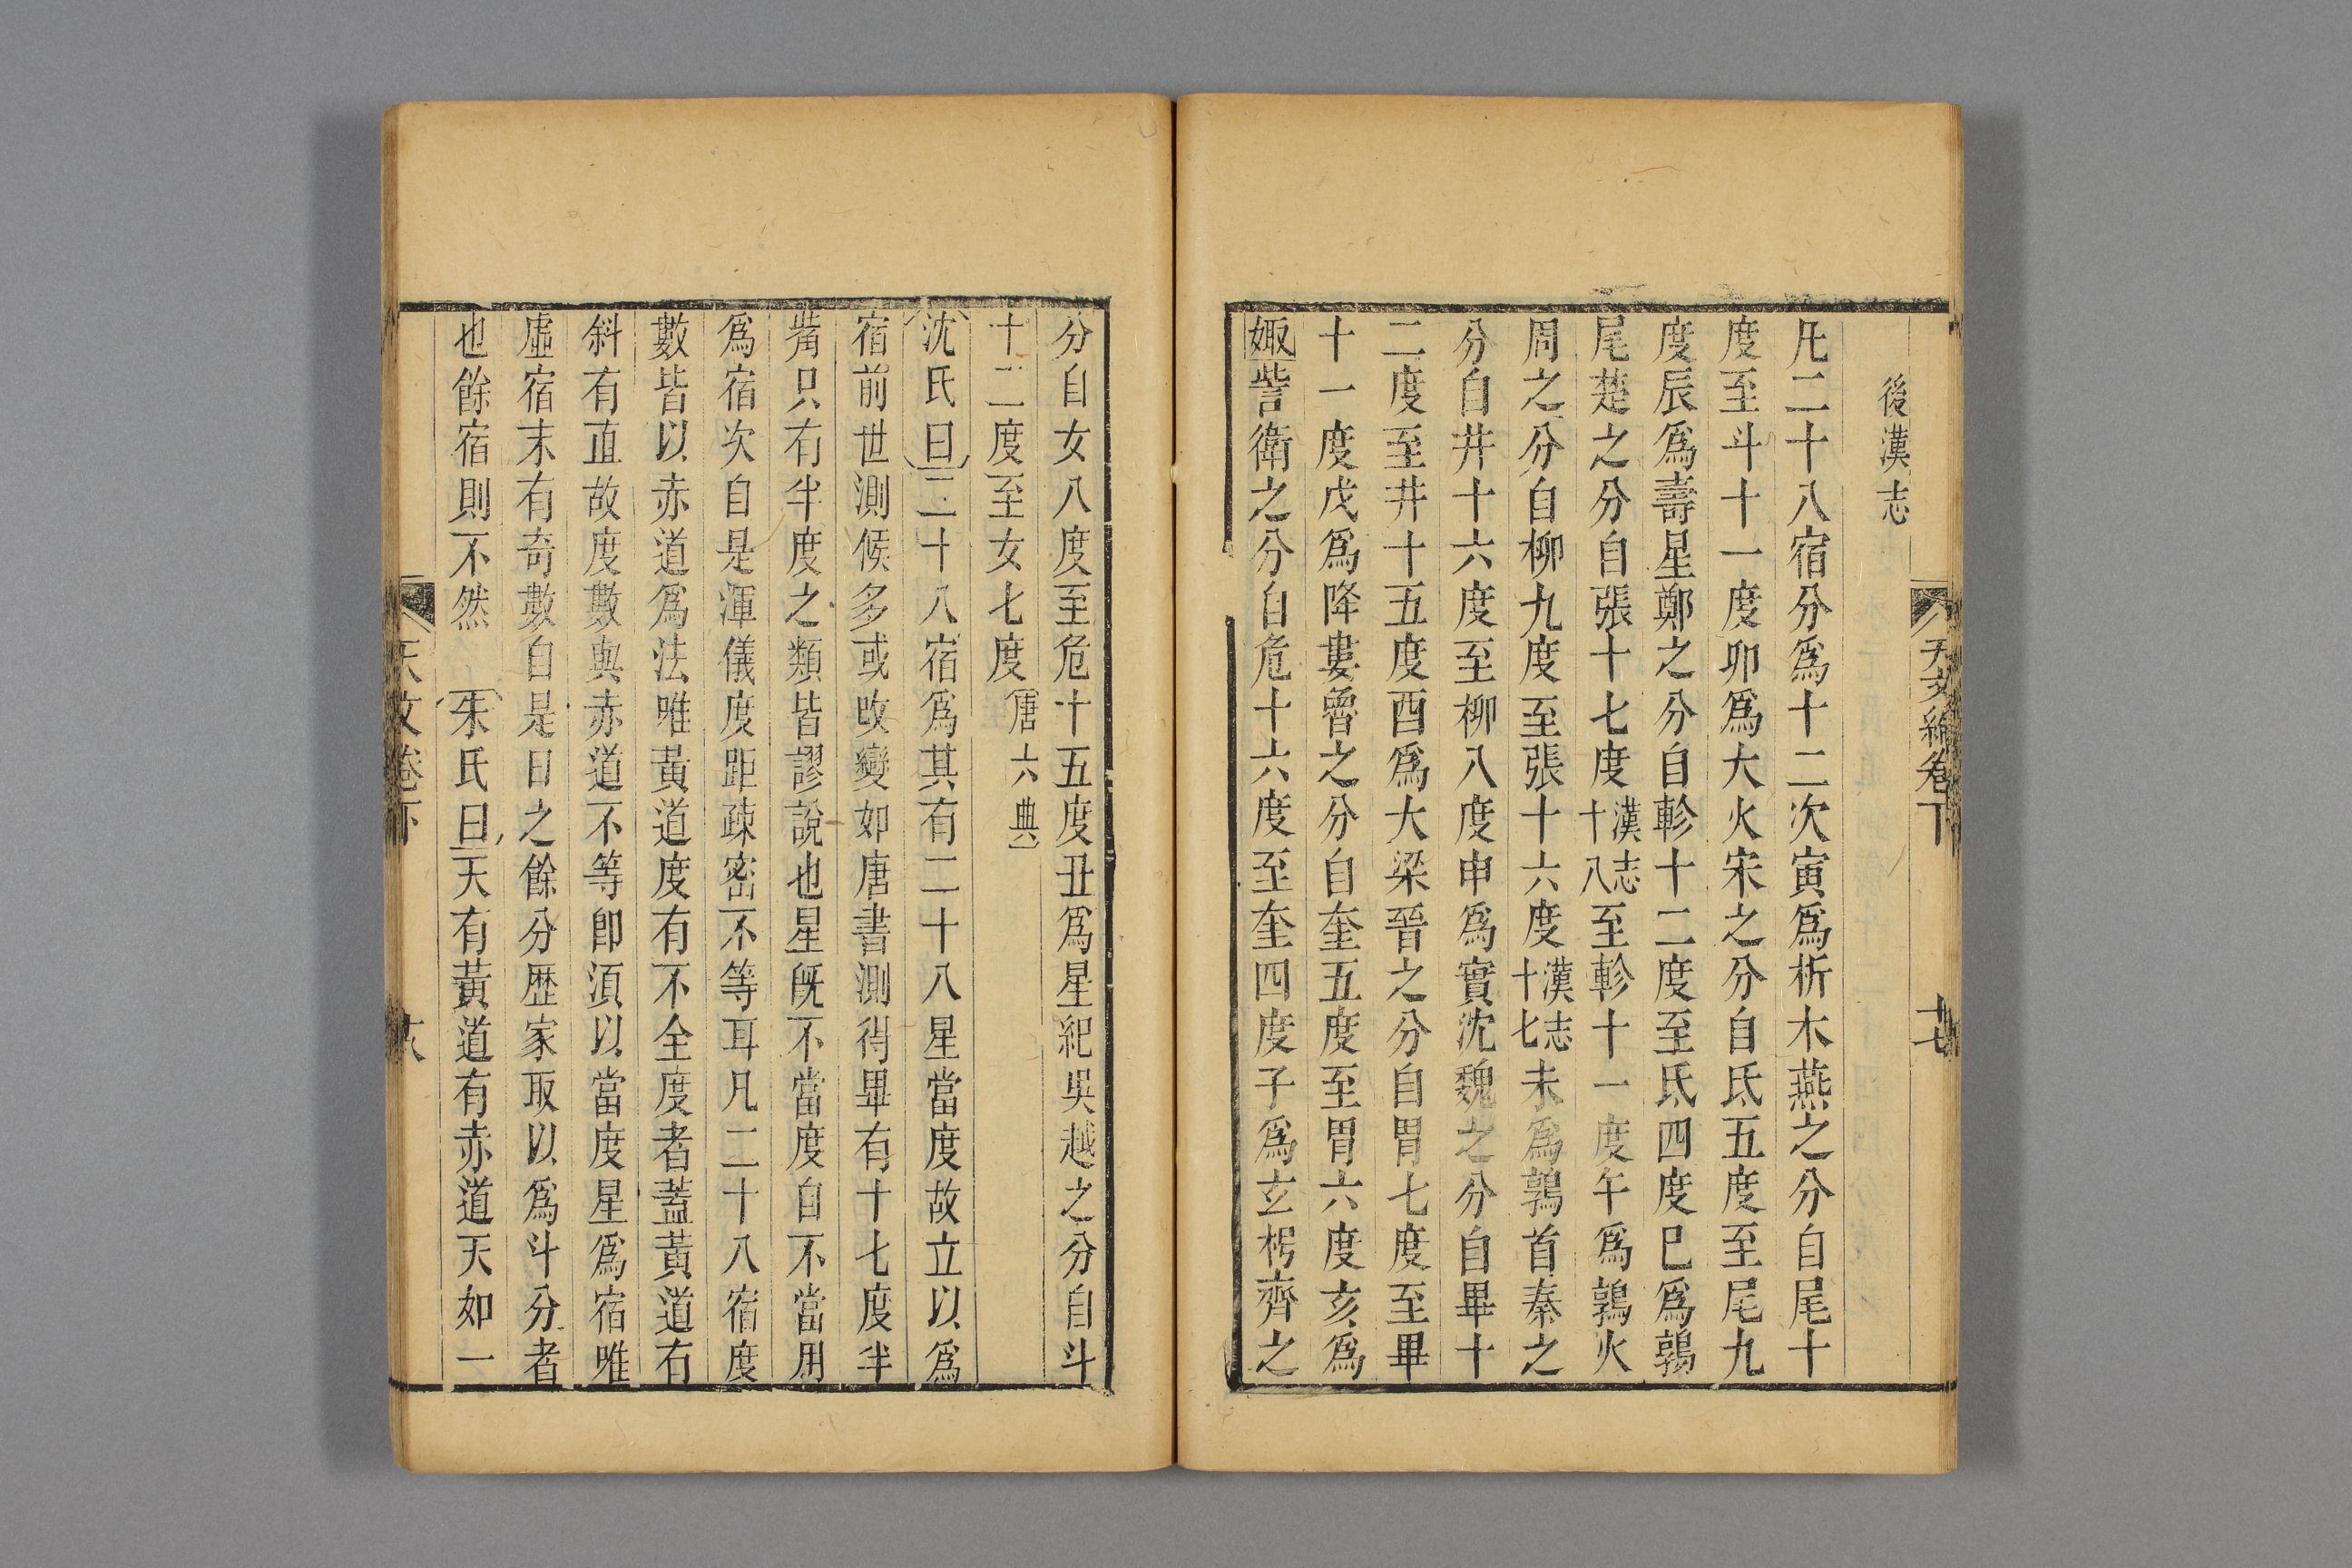 天文編卷下
十七
後漢志
凡二十八宿分爲十二次寅爲析木燕之分自尾十
度至斗十一度卯爲大火宋之分自氐五度至尾九
度辰爲壽星鄭之分自軫十二度至氐四度巳爲鶉
尾楚之分自張十七度漢志十八至軫十一度午爲鶉火
周之分自柳九度至張十六度漢志十七未爲鶉首秦之
分自井十六度至柳八度申爲實沈魏之分自畢十
二度至井十五度酉爲大梁晉之分自胃七度至畢
十一度戌爲降婁魯之分自奎五度至胃六度亥爲
娵訾衛之分自危十六度至奎四度子爲玄枵齊之
分自女八度至危十五度丑爲星紀吳越之分自斗
十二度至女七度唐六典
沈氏曰二十八宿爲其有二十八星當度故立以爲
宿前世測候多或改變如唐書測得畢有十七度半
觜只有半度之類皆謬說也星旣不當度自不當用
爲宿次自是渾儀度距疎密不等耳凡二十八宿度
數皆以赤道爲法唯黃道度有不全度者蓋黃道有
斜有直故度數與赤道不等卽須以當度星爲宿唯
虛宿末有奇數自是日之餘分歷家取以爲斗分者
也餘宿則不然 朱氏曰天有黃道有赤道天如一
天文卷下
十八